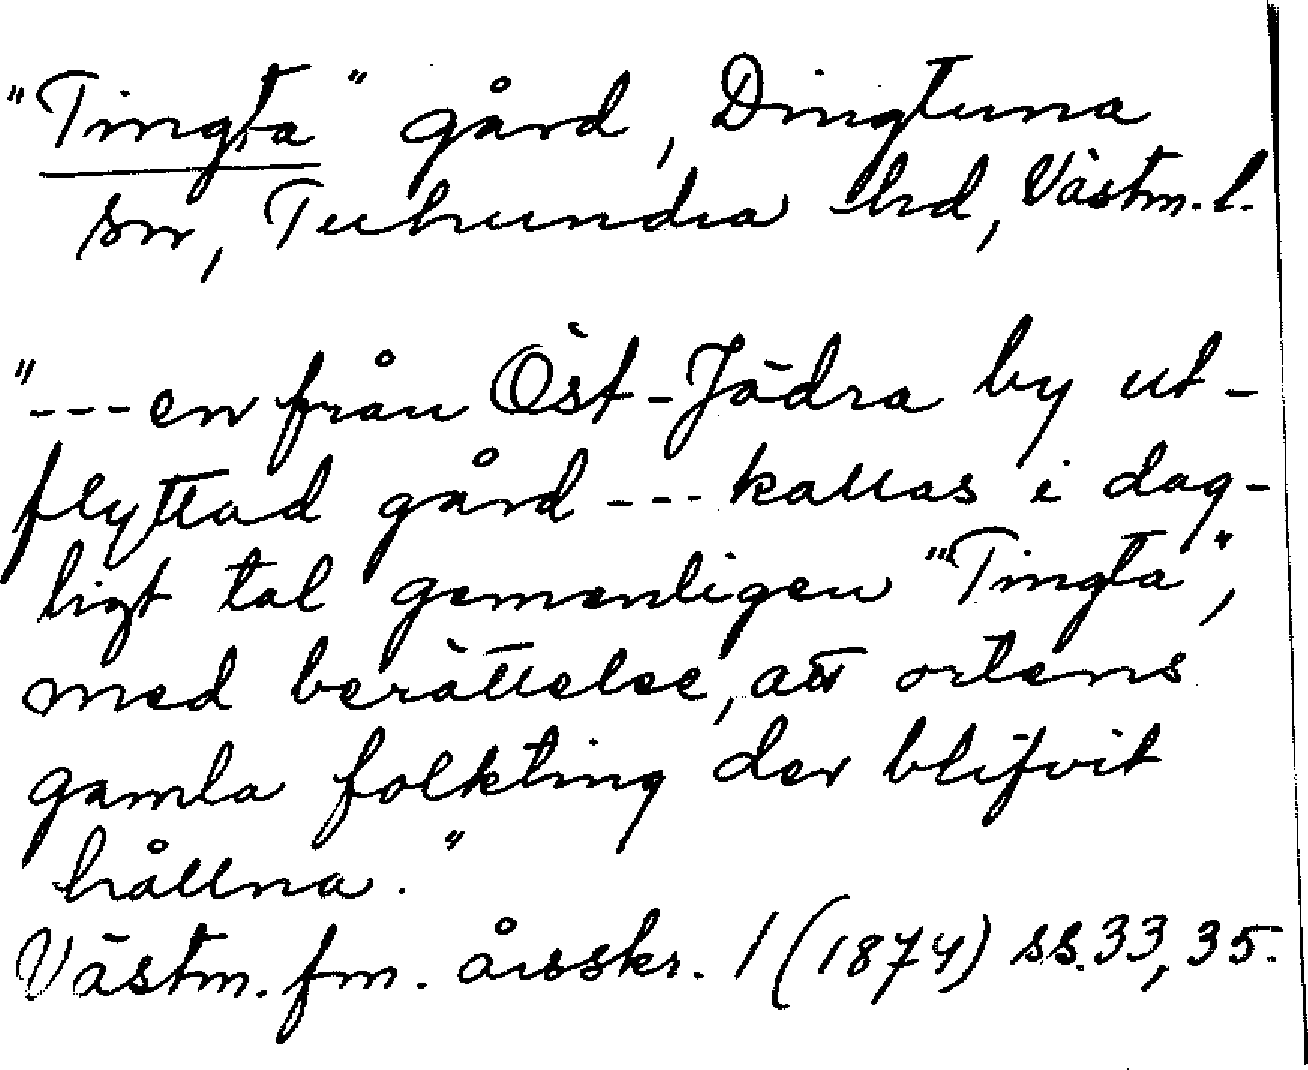 "Tingta" gård, Dingtuna
sn, Tuhundra hd, Västm. l.
"---en från Öst-Jädra by ut-
flyttad gård --- kallas i dag-
ligt tal gemenligen "Tingta",
med berättelse, att ortens
gamla folkting der blifvit
hållna."
Västm. fm. årsskr. 1 (1874) ss. 33, 35.